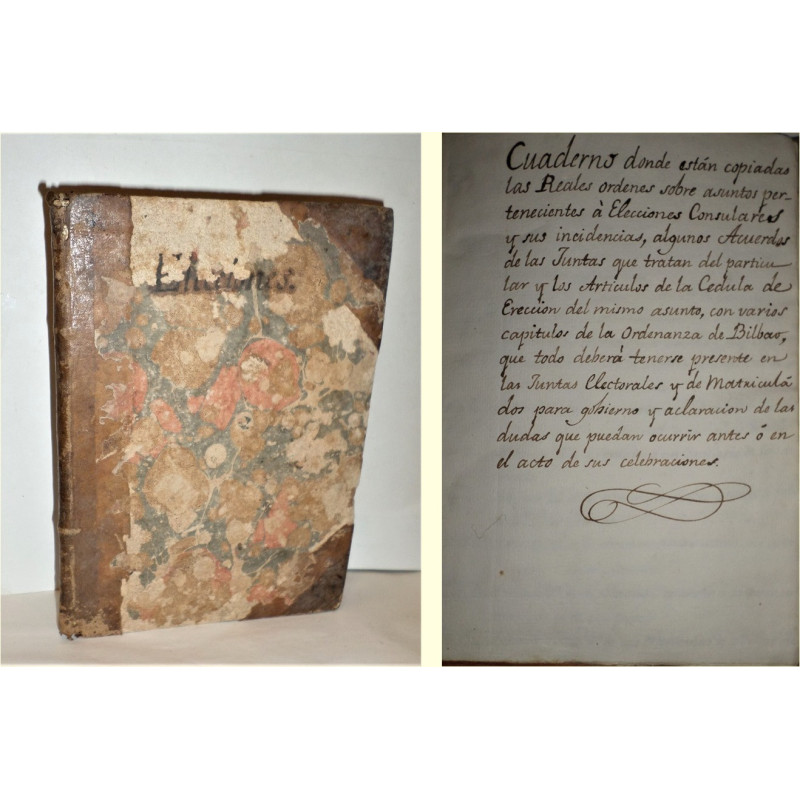 Elecciones.
Cuaderno donde están copiadas
las Reales ordenes sobre asuntos per-
tenecientes à Elecciones Consulares
y sus incidencias, algunos Acuerdos
de las Juntas que tratan del particu
lar y los Articulos de la Cedula de
Ereccion del mismo asunto, con varios
capitulos de la Ordenanza de Bilbao,
que todo deberà tenerse presente en
las Juntas Electorales y de Matriculá
dos para gobierno y aclaracion de las
dudas que puedan ocurrir antes ò en
el acto de sus celebraciones.